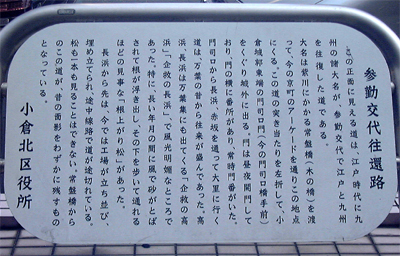 参勤交代往還路
この正面に見える道は、江戸時代に九
州の諸大名が、参勤交代で江戸と九州
を往復した道である。
大名は紫川にかかる常盤橋（木の橋）を渡
って、今の京町のアーケードを通りこの地点
にくる。この道の突き当たりを左折して、小
倉城郭東端の門司口門（今の門司口橋手前）
をくぐり城外に出る。門は昼夜開門して
おり、門の横に番所があり、常時門番がいた。
門司口から長浜、赤坂を通って大里に行く
道は、万葉の昔から往来が盛んであった。高
浜、長浜は万葉集にも出てくる「企救の高
浜」「企救の長浜」で、風光明媚なところで
あった。特に、長い年月の間に風で砂がとば
されて根が浮き出し、その下を歩いて通れる
ほどの見事な「根上がり松」があった。
長浜から先は、今では工場が立ち並び、
埋め立てられ、途中線路で道が途切れている。
松も一本も見ることはできない。常盤橋から
のこの道が、昔の面影をわずかに残すもの
となっている。
小倉北区役所